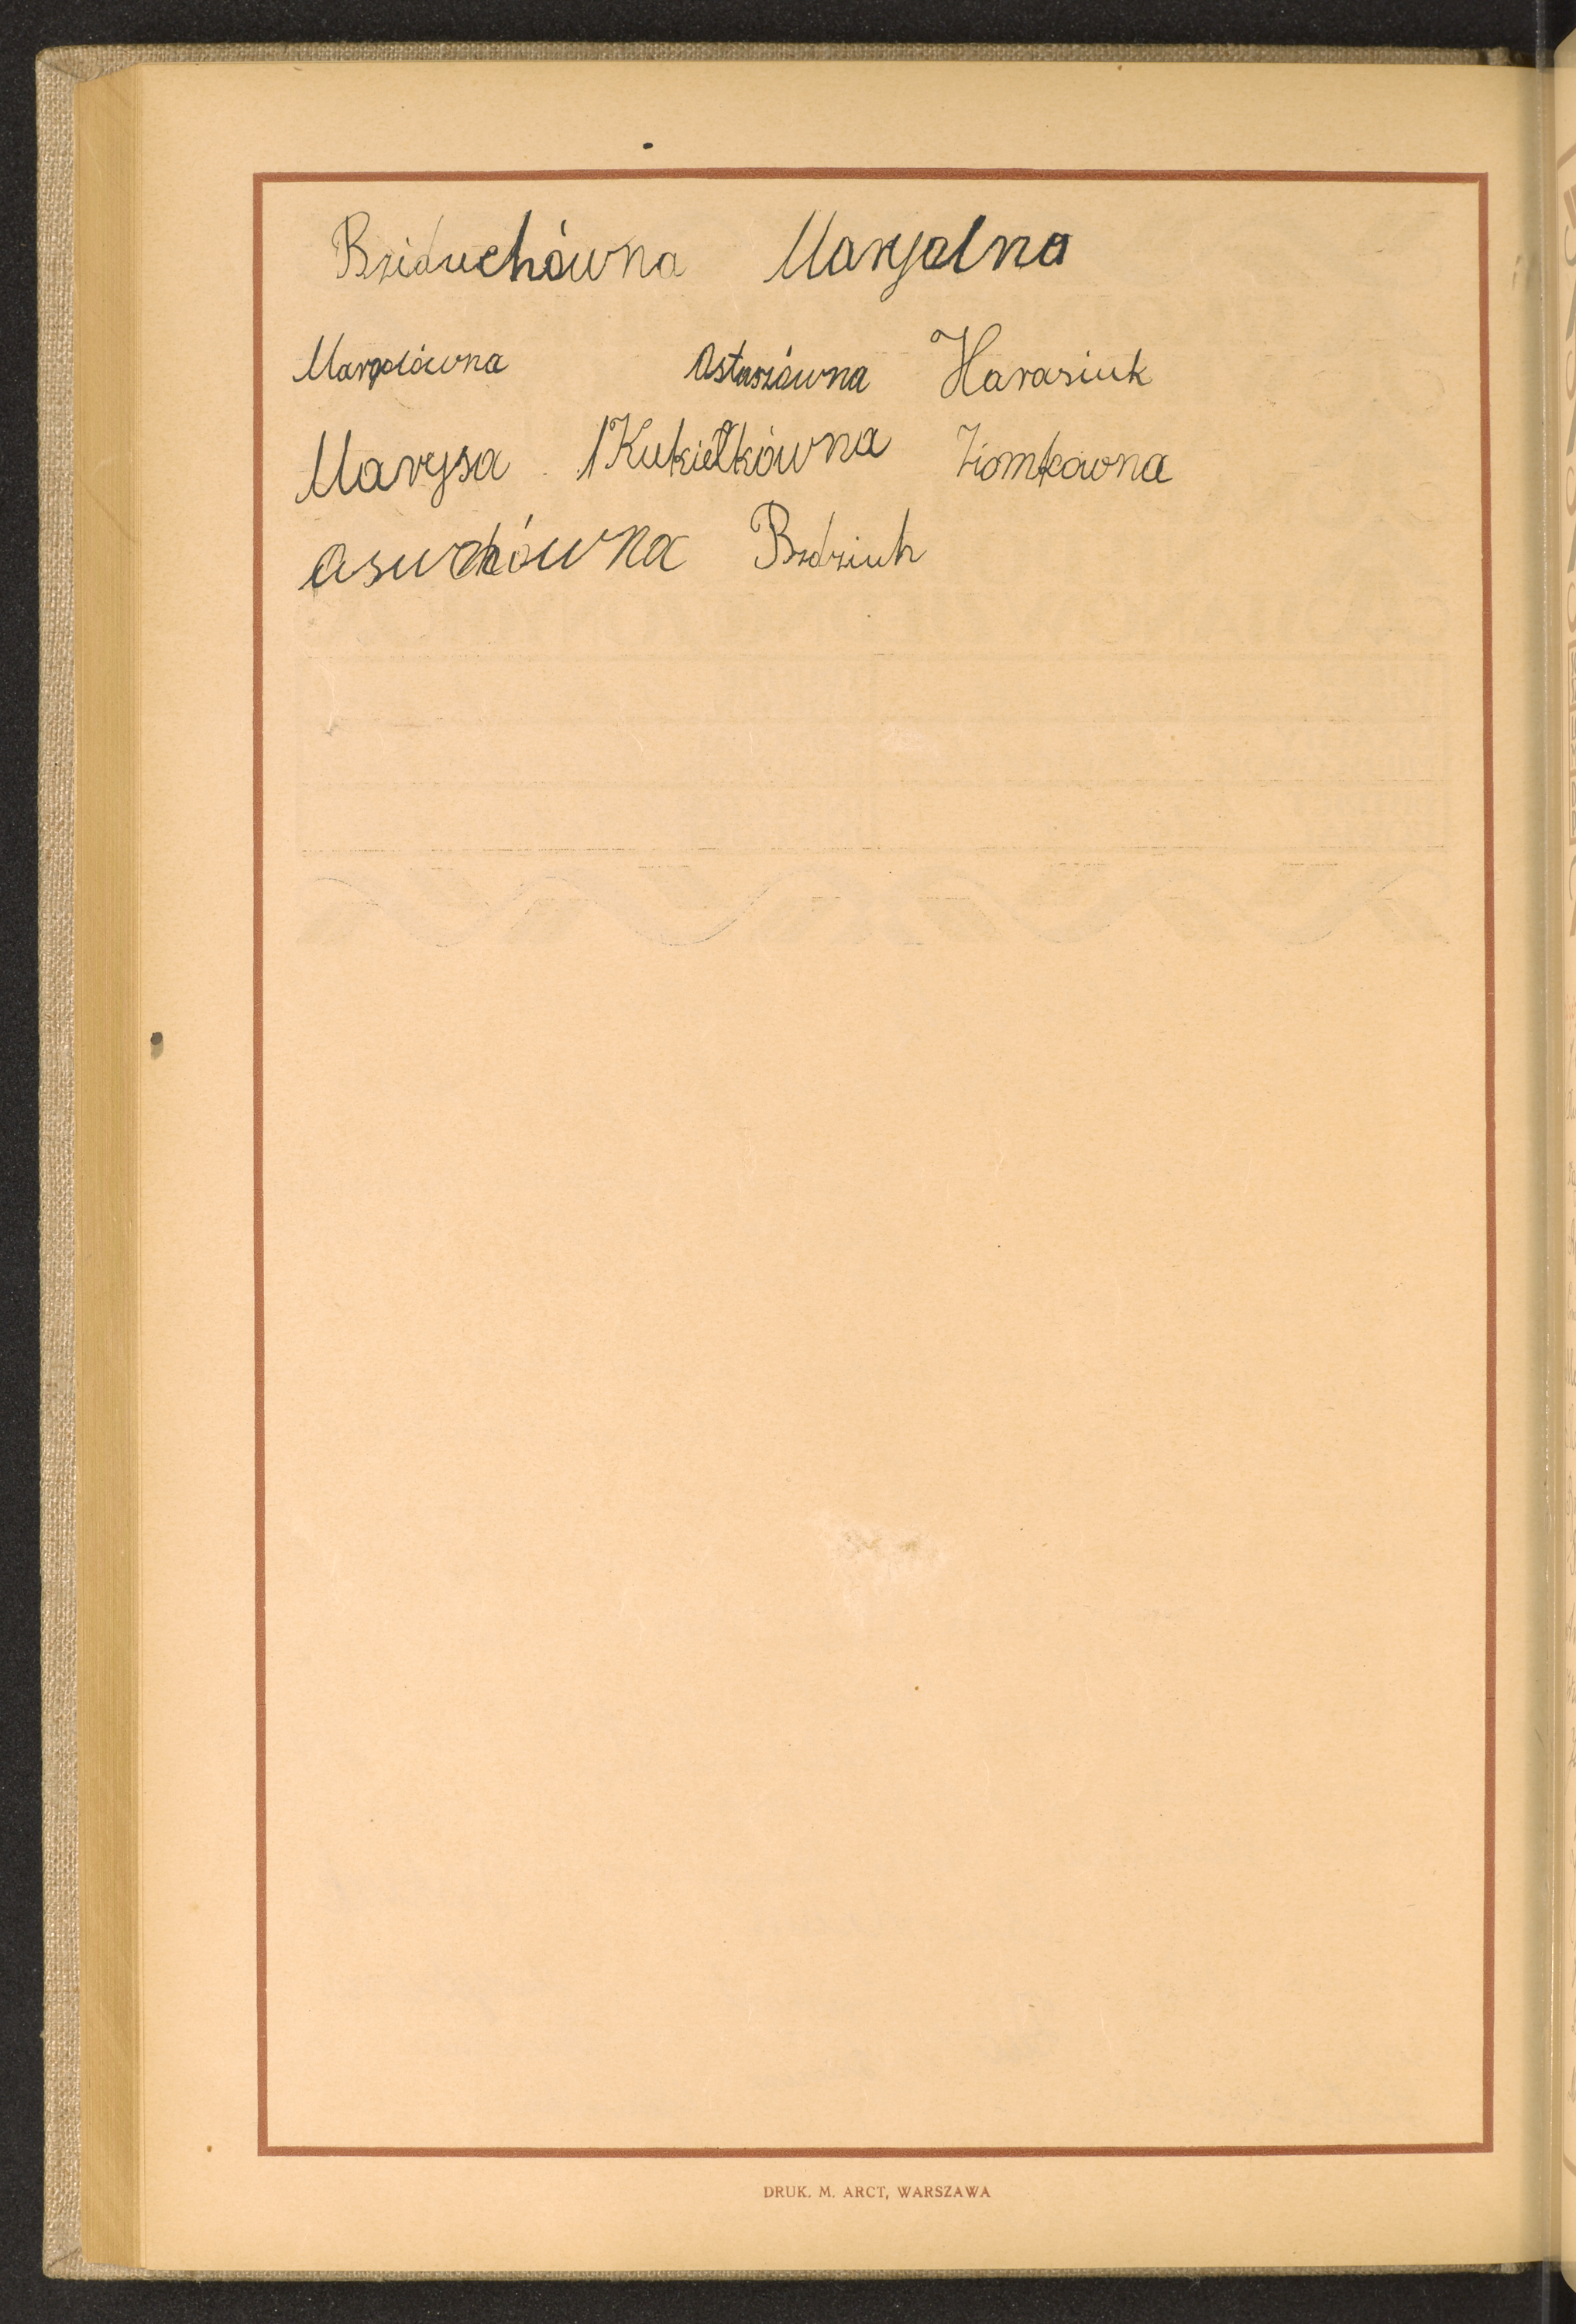 Bziduchówna Maryalna
Marydówna Ostaszówna Harasiuk
Marysa Kukiełkówna Ziomkówna
Asuchówna Bzdziuh
DRUK. M. ARCT, WARSZAWA